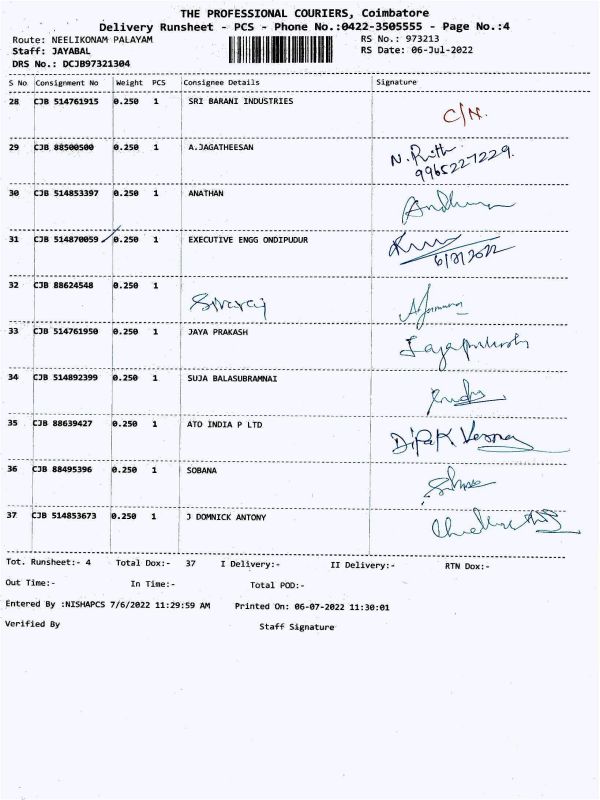 THE PROFESSIONAL COURIERS, Coimbatore
Delivery Runsheet - PCS - Phone No.:0422-3505555 - Page No.:4
Route: NEELIKONAM PALAYAM RS No.: 973213
Staff: JAYABAL RS Date: 06-Jul-2022
DRS No.: DCJB97321304
S No Consignment No Weight PCS Consignee Details Signature
28 CJB 514761915 0.250 1 SRI BARANI INDUSTRIES C/N.
29 CJB 88500500 0.250 1 A.JAGATHEESAN N.
9965227229.
30 CJB 514853397 0.250 1 ANATHAN
31 CJB 514870059 0.250 1 EXECUTIVE ENGG ONDIPUDUR
32 CJB 88624548 0.250 1 Sivaraj
33 CJB 514761950 0.250 1 JAYA PRAKASH Jayaprakash
34 CJB 514892399 0.250 1 SUJA BALASUBRAMNAI
35 CJB 88639427 0.250 1 ATO INDIA P LTD Dipak
36 CJB 88495396 0.250 1 SOBANA
37 CJB 514853673 0.250 1 J DOMNICK ANTONY
Tot. Runsheet:- 4 Total Dox:- 37 I Delivery:- II Delivery:- RTN Dox:-
Out Time:- In Time:- Total POD:-
Entered By :NISHAPCS 7/6/2022 11:29:59 AM Printed On: 06-07-2022 11:30:01
Verified By Staff Signature